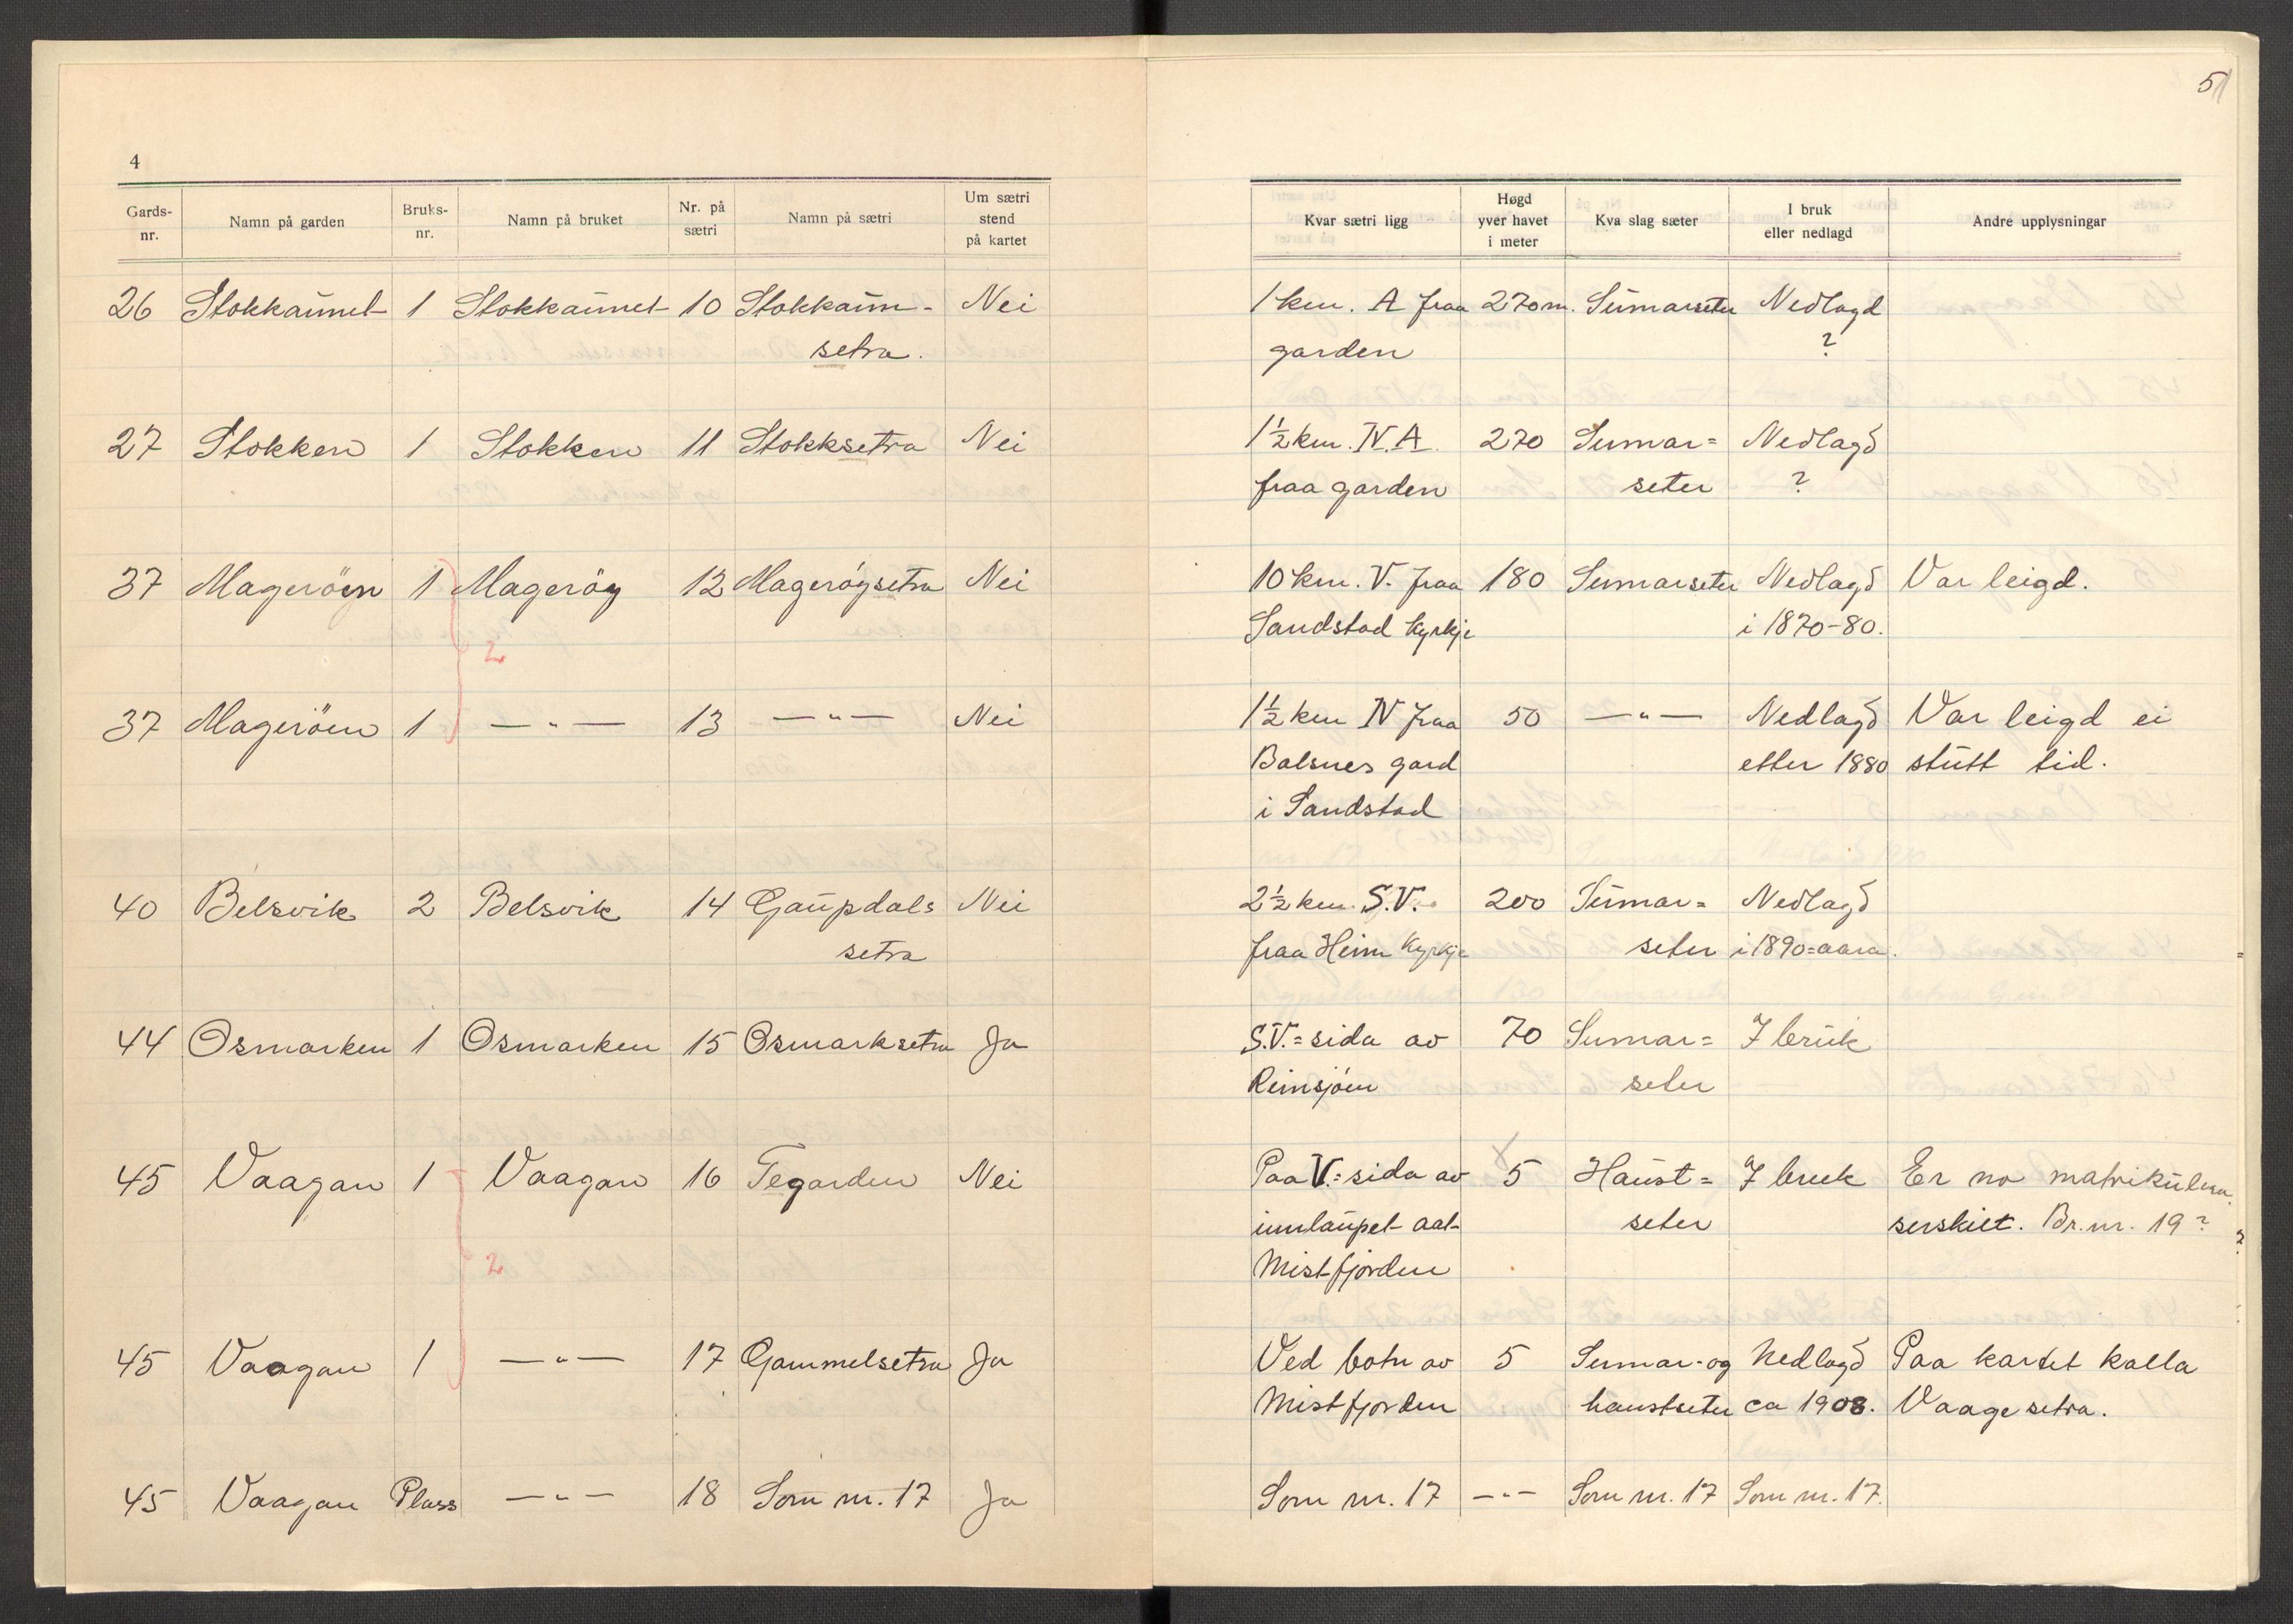 4
Gards-nr. Namn på garden Bruks-nr. Namn på bruket Nr. på sætri Namn på sætri Um sætri stend på kartet
26 Stokkaunet 1 Stokkaunet 10 Stokkaun- Nei
setra.
27 Stokken 1 Stokken 11 Stokksetra Nei
37 Mageröen 1 Mageröy 12 Mageröysetra Nei
2
37 Mageröen 1 —"— 13 —"— Nei
40 Belsvik 2 Belsvik 14 Gaupdals Nei
setra
44 Osmarken 1 Osmarken 15 Osmarksetra Ja
45 Vaagan 1 Vaagan 16 Tegarden Nei
2
45 Vaagan 1 —"— 17 Gammelsetra Ja
45 Vaagan Plass —"— 18 Som nr. 17 Ja
5
Kvar sætri ligg Høgd yver havet i meter Kva slag sæter I bruk eller nedlagd Andre upplysningar
1 km. A fraa 270 m. Sumarseter Nedlagd
garden ?
1½ km. N.A. 270 Sumar= Nedlagd
fraa garden seter ?
10 km. V. fraa 180 Sumarseter Nedlagd Var leigd.
Sandstad kyrkje i 1870-80.
1½ km N fraa 50 —"— Nedlagd Var leigd ei
Balsnes gard etter 1880 stutt tid.
i Sandstad
2½ km. S.V. 200 Sumar= Nedlagd
fraa Heim Kyrkje seter i 1890=aara.
S.V.=sida av 70 Sumar= I bruk
Reinsjöen seter
Paa V.=sida av 5 Haust= I bruk Er no matrikulera
innlaupet aat seter serskilt. Br.nr. 19?
Mistfjorden
Ved botn av 5 Sumar- og Nedlagd Paa kartet kalla
Mistfjorden haustseter ca 1908. Vaagesetra.
Som nr. 17 —"— Som nr. 17 Som nr. 17.